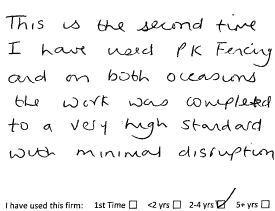 This is the second time
I have used PK Fencing
and on both occasions
the work was completed
to a very high standard
with minimal disruption
I have used this firm: 1st Time ☐ <2 yrs ☐ 2-4 yrs ☑ 5+ yrs ☐